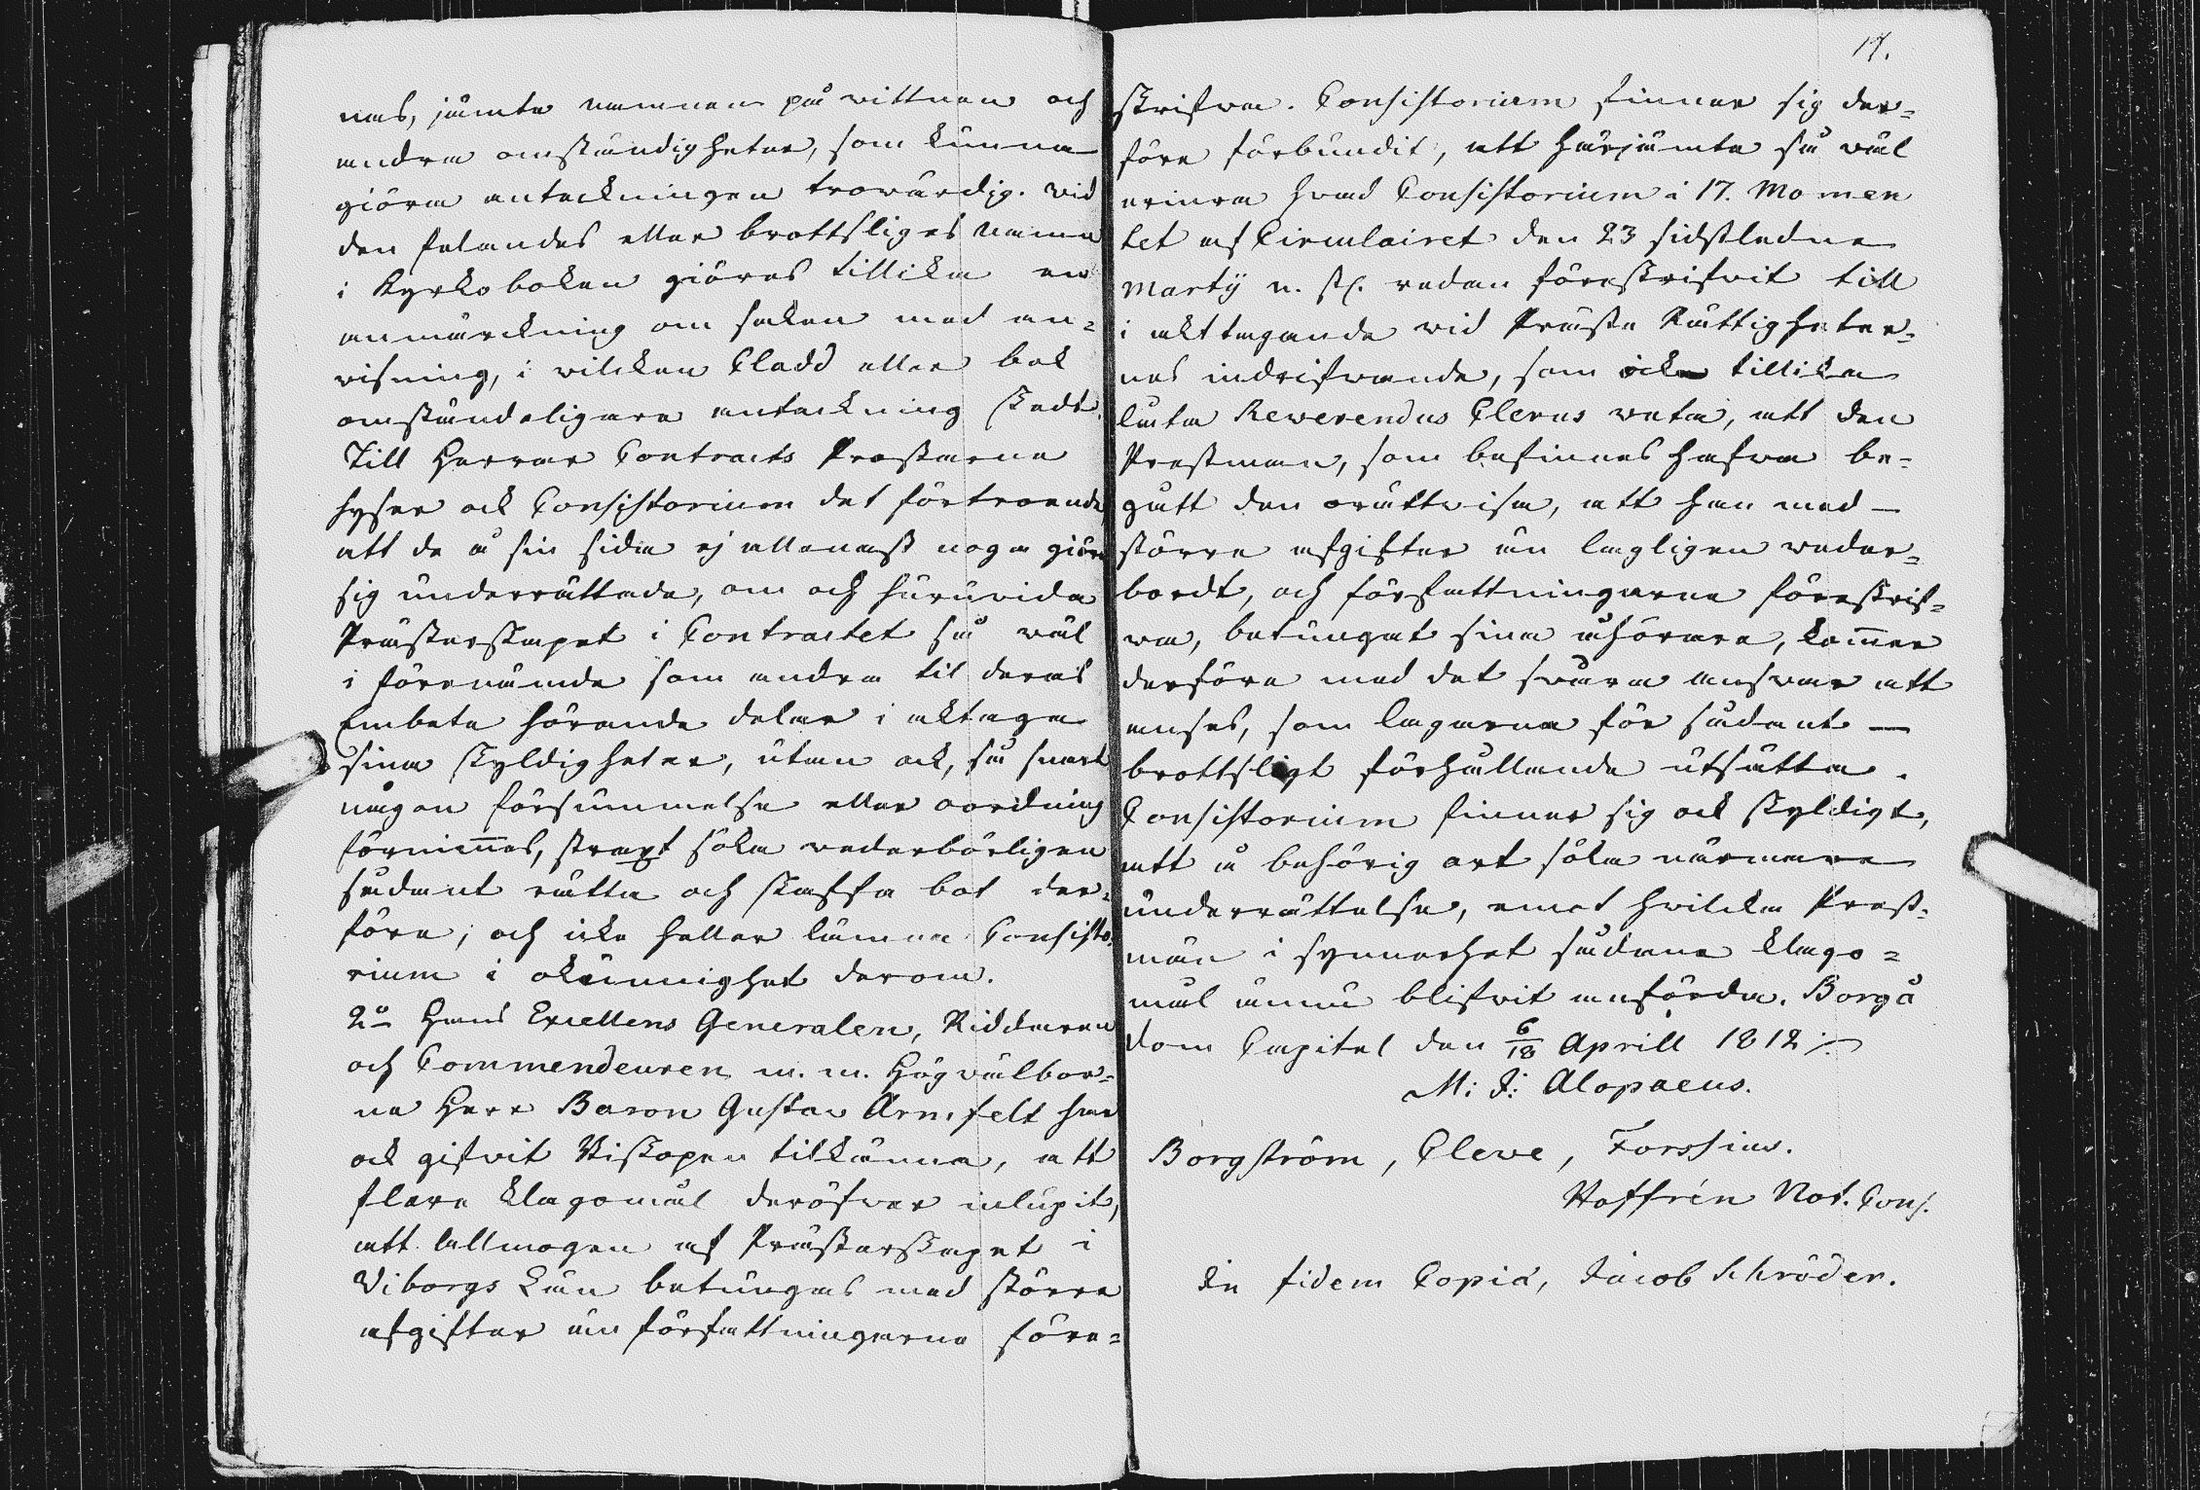 nas, jämte namnen på vittnen och
andra omständigheter, som kunna
giöra anteckningen trovärdig. vid
den felandes eller brottsliges namn
i Kyrkoboken giöres tillika en
anmärckning om saken med an=
visning, i vilcken Cladd eller bok
omständeligare anteckning skedt.
Till Herrar Contracts Prostarne
hyser ock Consistorium det förtroende,
att de å sin sida ej allenast noga giöra
sig underrättade, om och huruvida
Prästerskapet i Contractet så väl
i förenämde som andra til deras
Embete hörande delar i akttaga
sina skyldigheter, utan ock, så snart
någon försummelse eller oordning
förnim̅es, straxt söka vederbörligen
sådant rätta och skaffa bot der=
före; och icke heller lämna Consisto=
rium i okunnighet derom.
2o Hans Excellens Generalen, Riddaren
och Commendeuren m. m. Högvälbor=
na Herr Baron Gustav Armfelt har
ock gifvit Biskopen tilkänna, att
flere klagomål deröfver inlupit,
att allmogen af Prästerskapet i
Viborgs Län betungas med större
afgifter än författningarne före=
17.
skrifva. Consistorium finner sig der=
före förbundit, att härjämte så väl
erinra hvad Consistorium i 17. Momen
tet af Circulairet den 23 sidstledne
Martÿ n. st. redan föreskrifvit till
i akttagande vid Präste Rättigheter=
nas indrifvande, som ock tillika
låta Reverendus Clerus veta, att den
Prestman, som befinnes hafva be=
gått den orättvisa, att han med —
större afgifter än lagligen veder=
bordt, och författningarne föreskrif=
va, betungat sina åhörare, kom̅er
derföre med det svåra ansvar att
anses, som lagarna för sådant —
brottsligt förhållande utsätta.
Consistorium finner sig ock skyldigt,
att å behörig ort söka närmare
underrättelse, emot hvilcka Prest=
män i synnerhet sådane klago=
mål ännu blifvit anförda. Borgå
Dom Capitel den 6/18 Aprill 1812 ./.
M: J: Alopaeus.
Borgström, Cleve, Forssius.
Hoffrén Not. Cons.
In fidem Copiæ, Jacob Schröder.